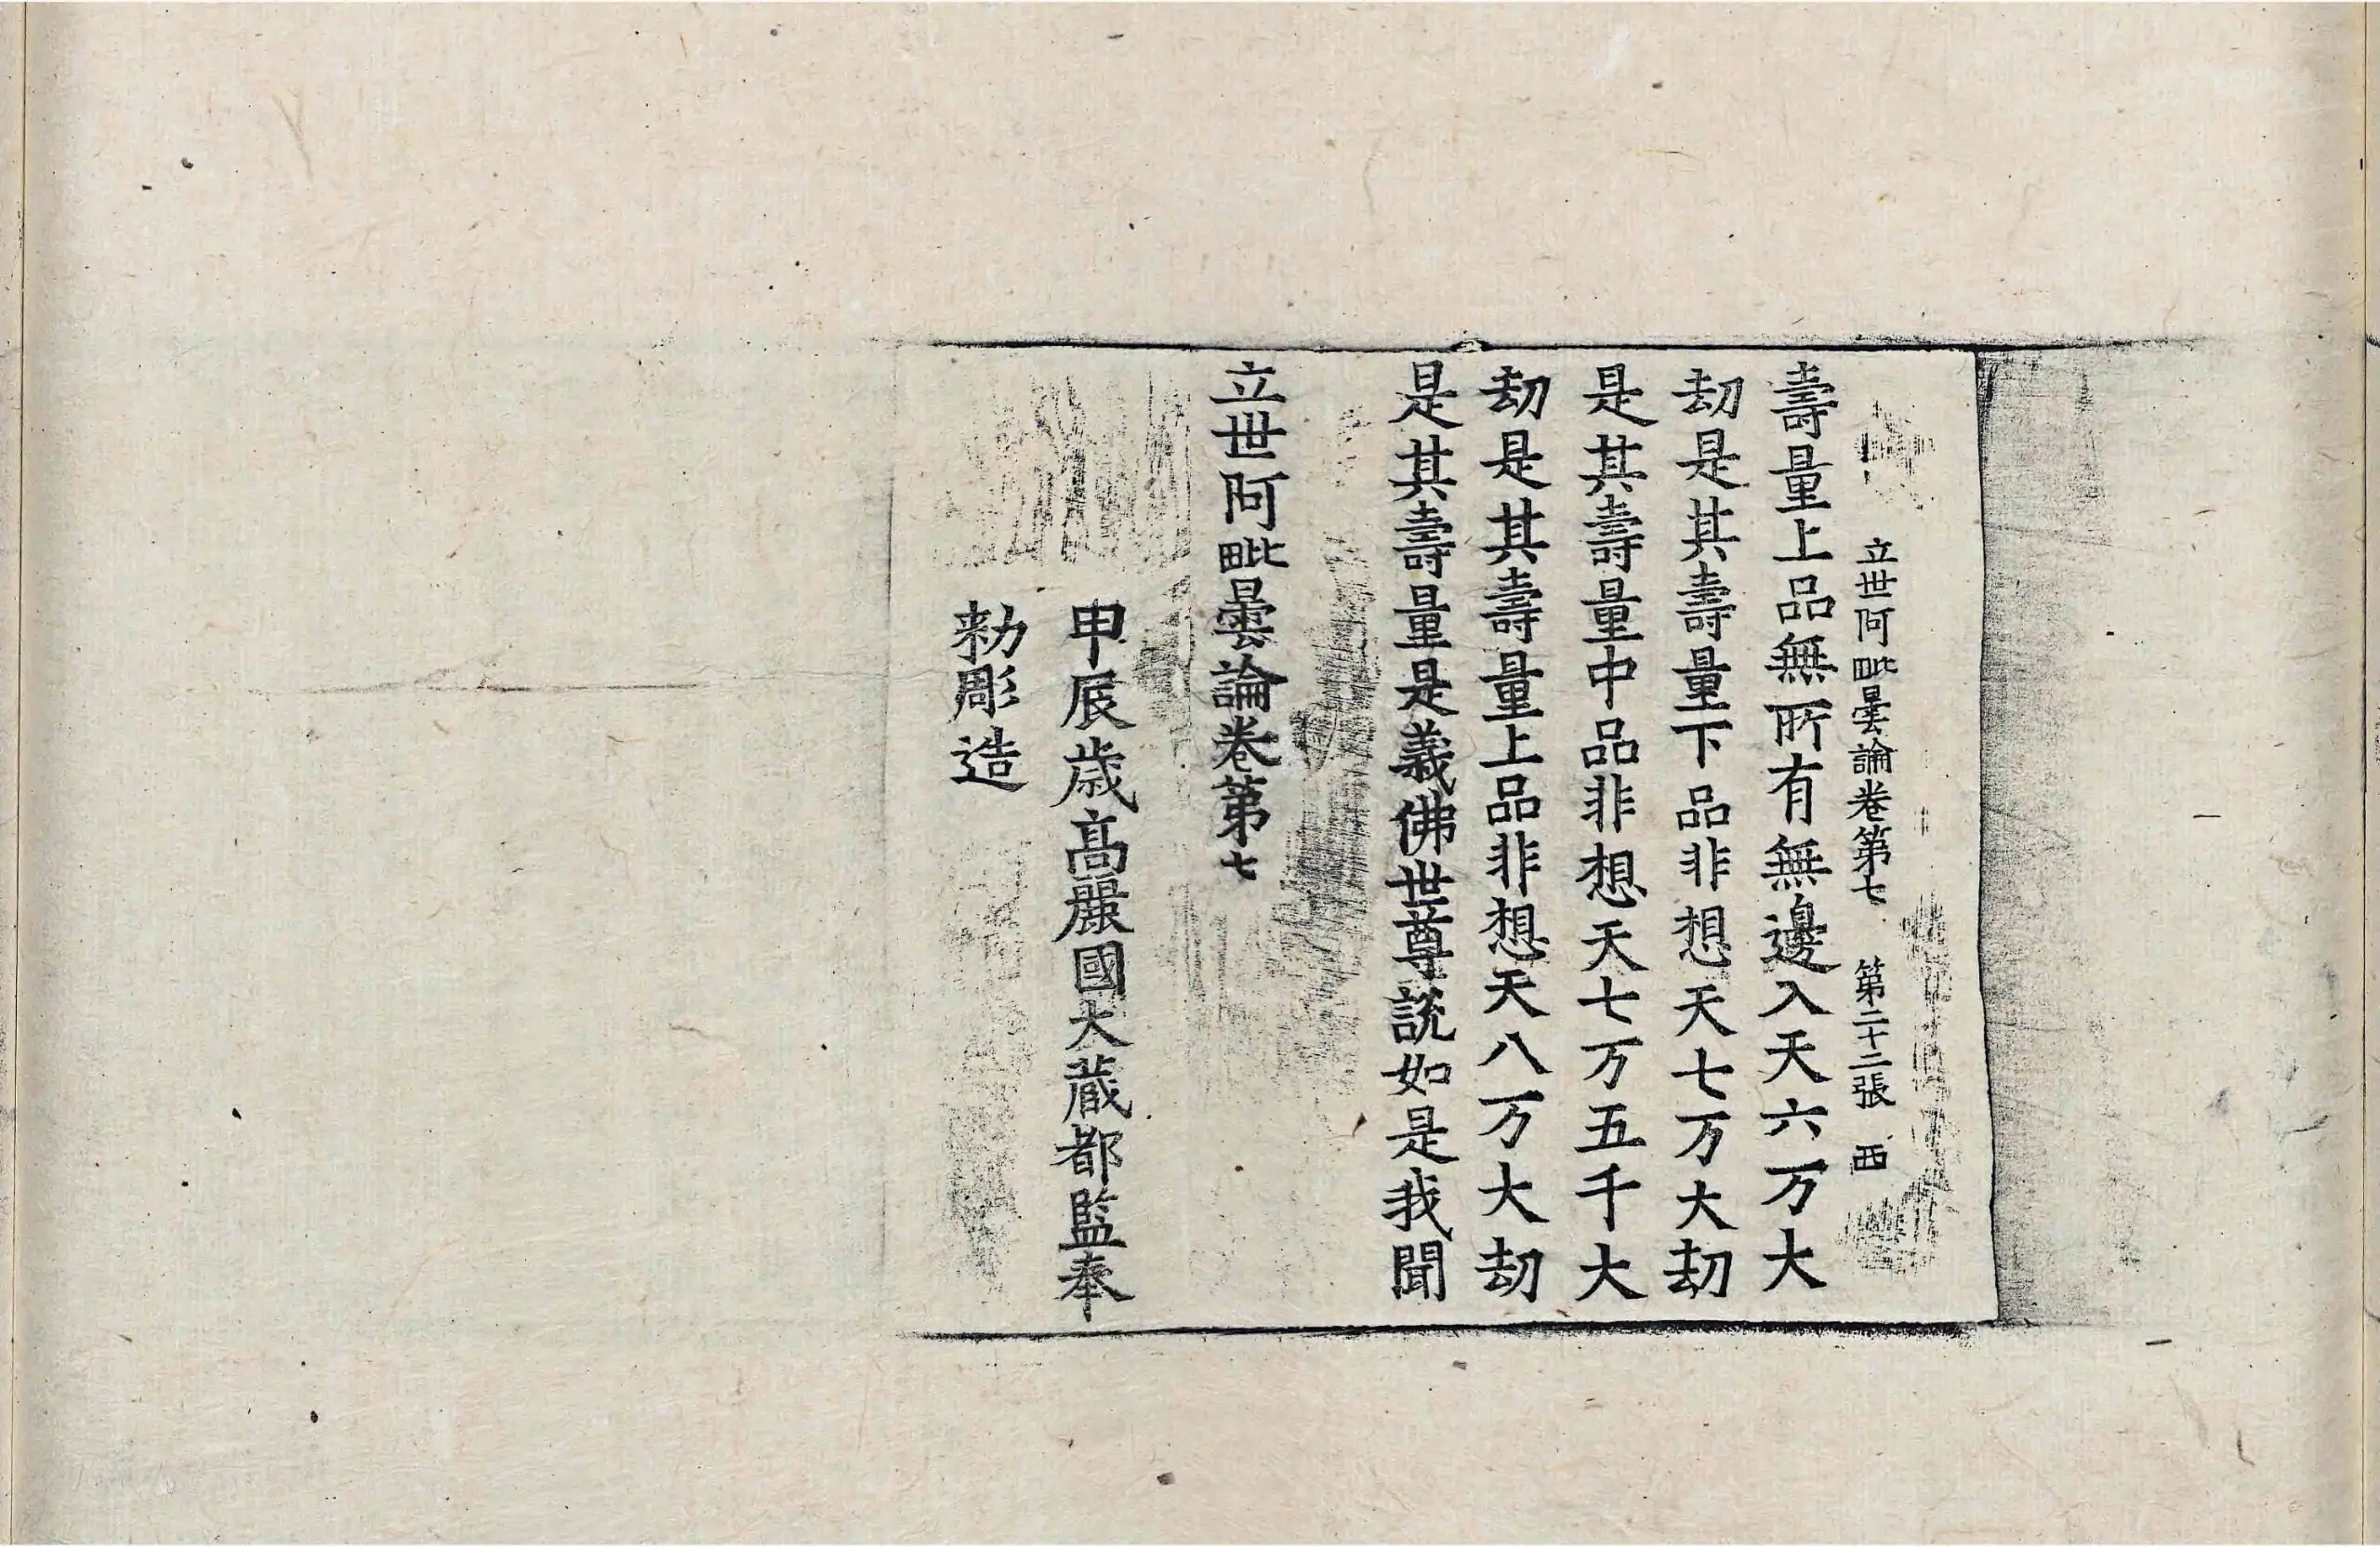 立世阿毗曇論卷第七 第二十二張 西
壽量上品無所有無邊入天六万大
劫是其壽量下品非想天七万大劫
是其壽量中品非想天七万五千大
劫是其壽量上品非想天八万大劫
是其壽量是義佛世尊說如是我聞
立世阿毗曇論卷第七
甲辰歲高麗國大藏都監奉
勑彫造